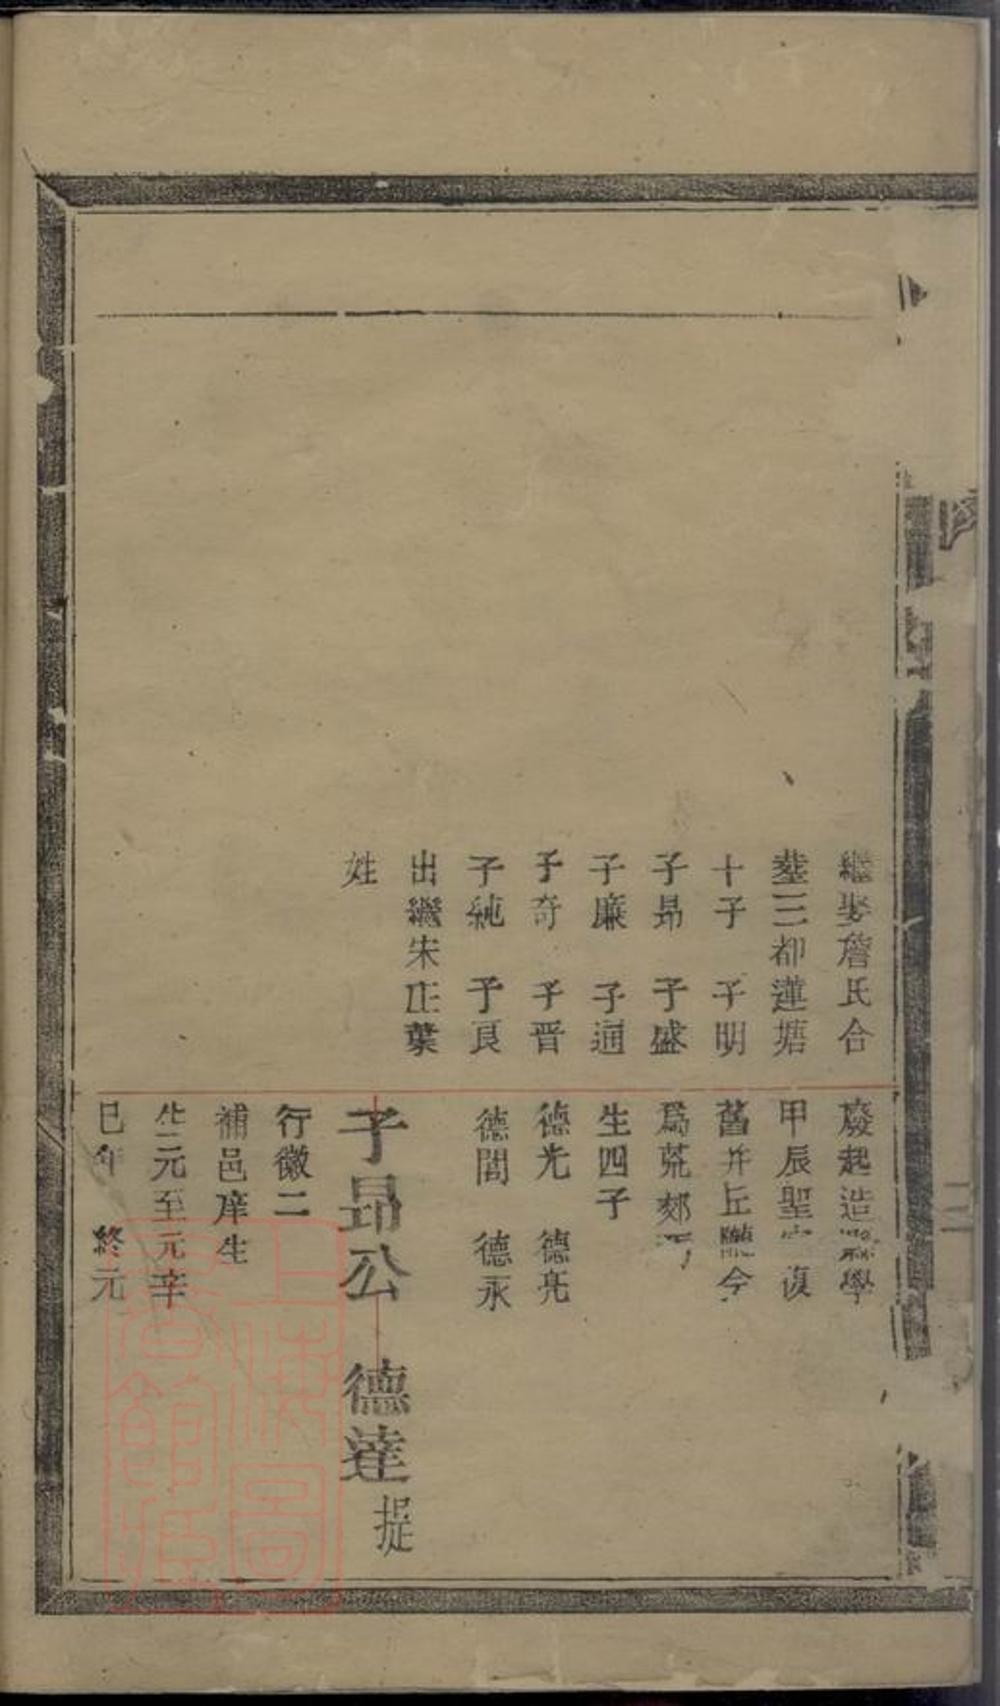 繼娶詹氏合
塟三都蓮塘
十子　子明
子昴　子盛
子廉　子通
子奇　子晋
子純　子良
出繼朱庄葉
姓
廢起造縣學
甲辰聖　復
舊并丘隴今
爲荒郊
生四子
德光　德亮
德誾　德永
子昴公　德達　捉
行徽二
補邑庠生
生元至元辛
巳年　終元
上海圖
書館藏